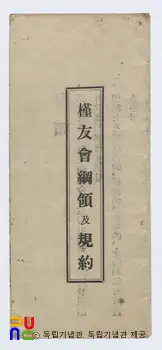 槿友會綱領及規約
© 독립기념관, 독립기념관 제공